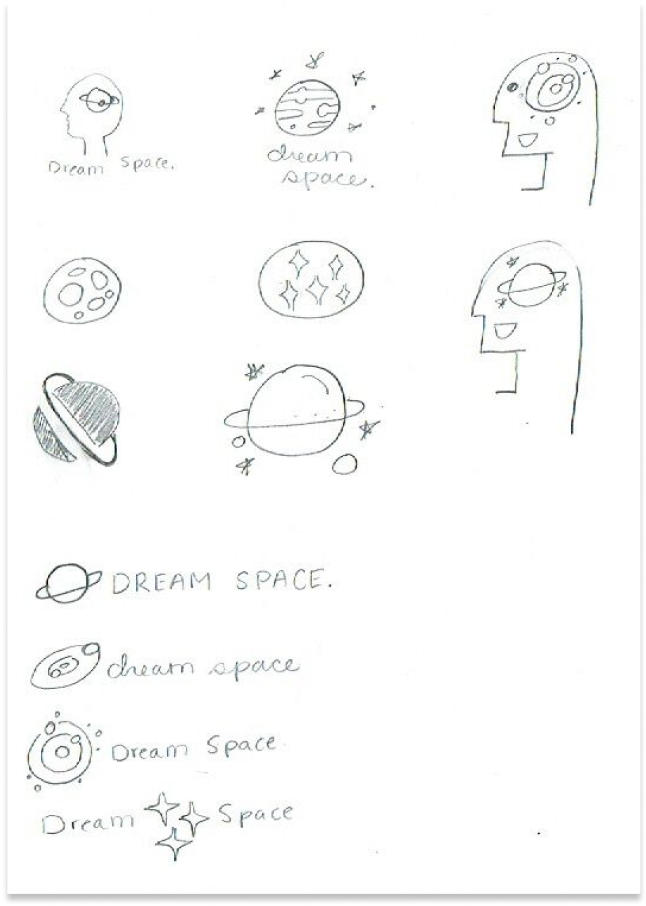 Dream Space.
dream
space.
DREAM SPACE.
dream space
Dream Space
Dream Space